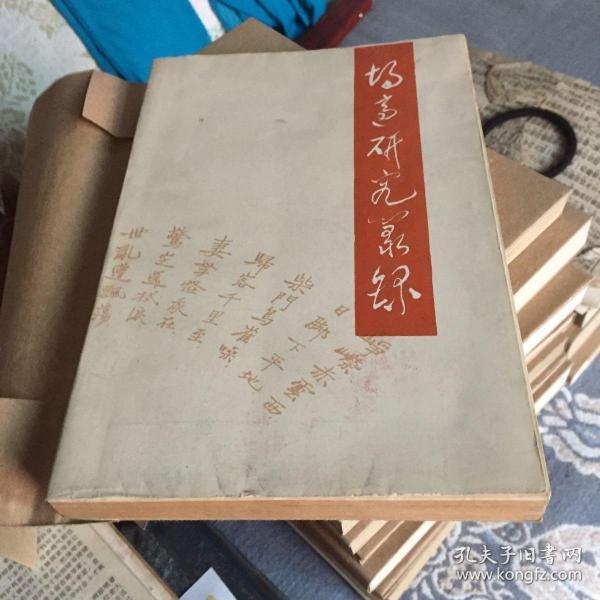 研究叢錄
崢嶸赤雲西
日腳下平地
柴門鳥雀噪
歸客千里至
妻孥怪我在
驚定還拭淚
世亂遭飄蕩
孔夫子旧书网
www.kongfz.com